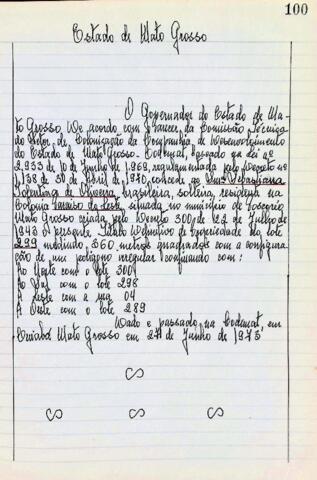 100
Estado de Mato Grosso
O Governador do Estado de Ma-
to Grosso De acordo com o parecer da Comissão Técnica
do Setor de Colonização da Companhia de Desenvolvimento
do Estado de Mato Grosso - Codemat, baseado na Lei nº
2.933 de 10 de Junho de 1.969, regulamentada pelo Decreto nº
1.138 de 30 de Abril de 1.970, concede ao Srª Sebastiana
Tolentina de Oliveira, brasileira, solteira, residente na
Colonia Paraiso do Leste, situada no município de Poxoréo
Mato Grosso criada pelo Decreto 300, de 24 de Junho de
1943 o presente Titulo Definitivo de propriedade do lote
299 medindo, 360 metros quadrados com a configura-
ção de um poligono irregular confinando com:
Ao Norte com o lote 300
Ao Sul com o lote 298
A Leste com a rua 04
A Oeste com o lote 289
Dado e passado, na Codemat, em
Cuiabá Mato Grosso em 27 de Junho de 1975